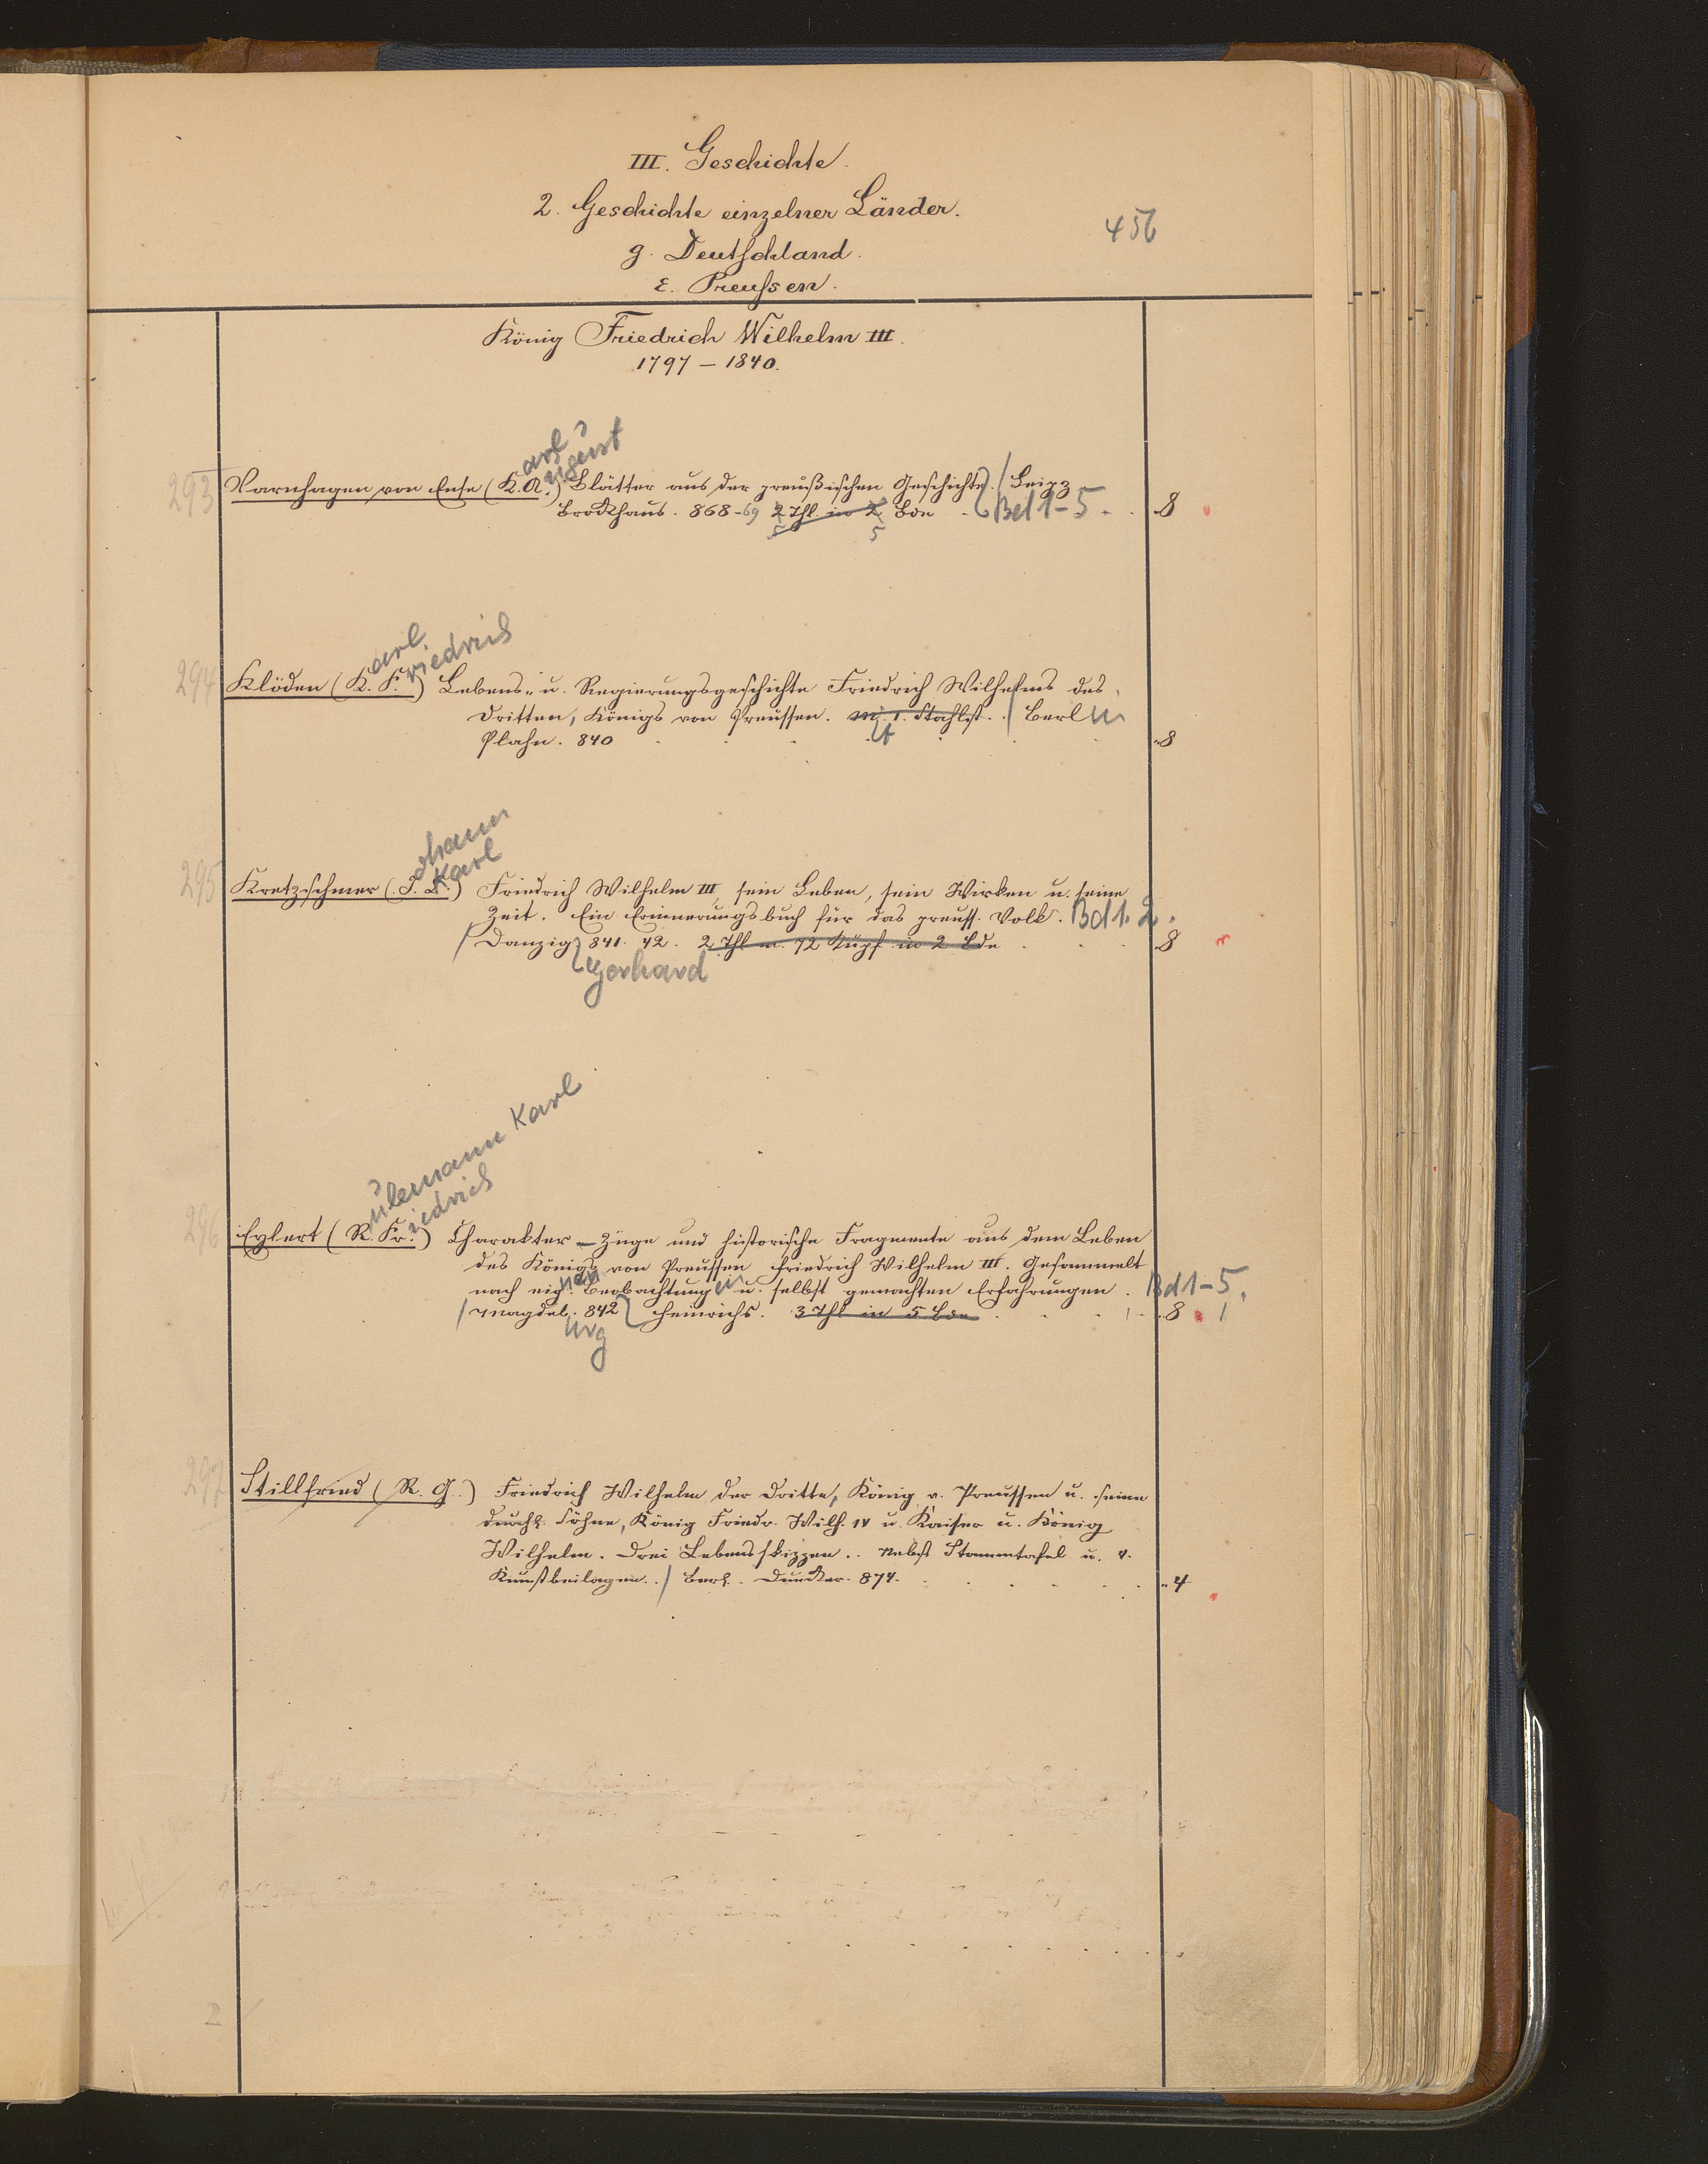 III. Geschichte.
2. Geschichte einzelner Länder.
456
g. Deutschland.
ε. Preußen.
König Friedrich Wilhelm III.
1797 – 1840.
arl
ugust
293 Varnhagen von Ense (K. A.) Blätter aus der preußischen Geschichte. / Leipz
Brockhaus. 868-69 2 Thl. in 2 Bde Bd 1-5. 8
5 5
arl
riedrich
294 Klöden (K. F.) Lebens- u. Regierungsgeschichte Friedrich Wilhelms des
Dritten, Königs von Preussen. m. 1. Stahlst. / Berlin
Plahn. 840 8
ohann
Karl
295 Kretzschmer (J. C.) Friedrich Wilhelm III, sein Leben, sein Wirken u. seine
Zeit. Ein Erinnerungsbuch für das preuss. Volk. Bd 1. 2.
/ Danzig 841. 42. 2 Thl m. 12 Kupf in 2 Bde 8
Gerhard
ulemann Karl
iedrich
296 Eylert (R. Fr.) Charakter-Züge und historische Fragmente aus dem Leben
des Königs von Preussen Friedrich Wilhelm III. Gesammelt
nach eig. nen Beobachtungen u. selbst gemachten Erfahrungen. Bd 1-5.
/ Magdeb. 842 Heinrichs. 3 Thl in 5 Bde 8
urg
297 Stillfried (R. G.) Friedrich Wilhelm der Dritte, König v. Preussen u. seine
durchl. Söhne, König Friedr. Wilh. IV u. Kaiser u. König
Wilhelm. Drei Lebensskizzen.. Nebst Stammtafel u. 4.
Kunstbeilagen.. / Berl. Duncker. 874. 4